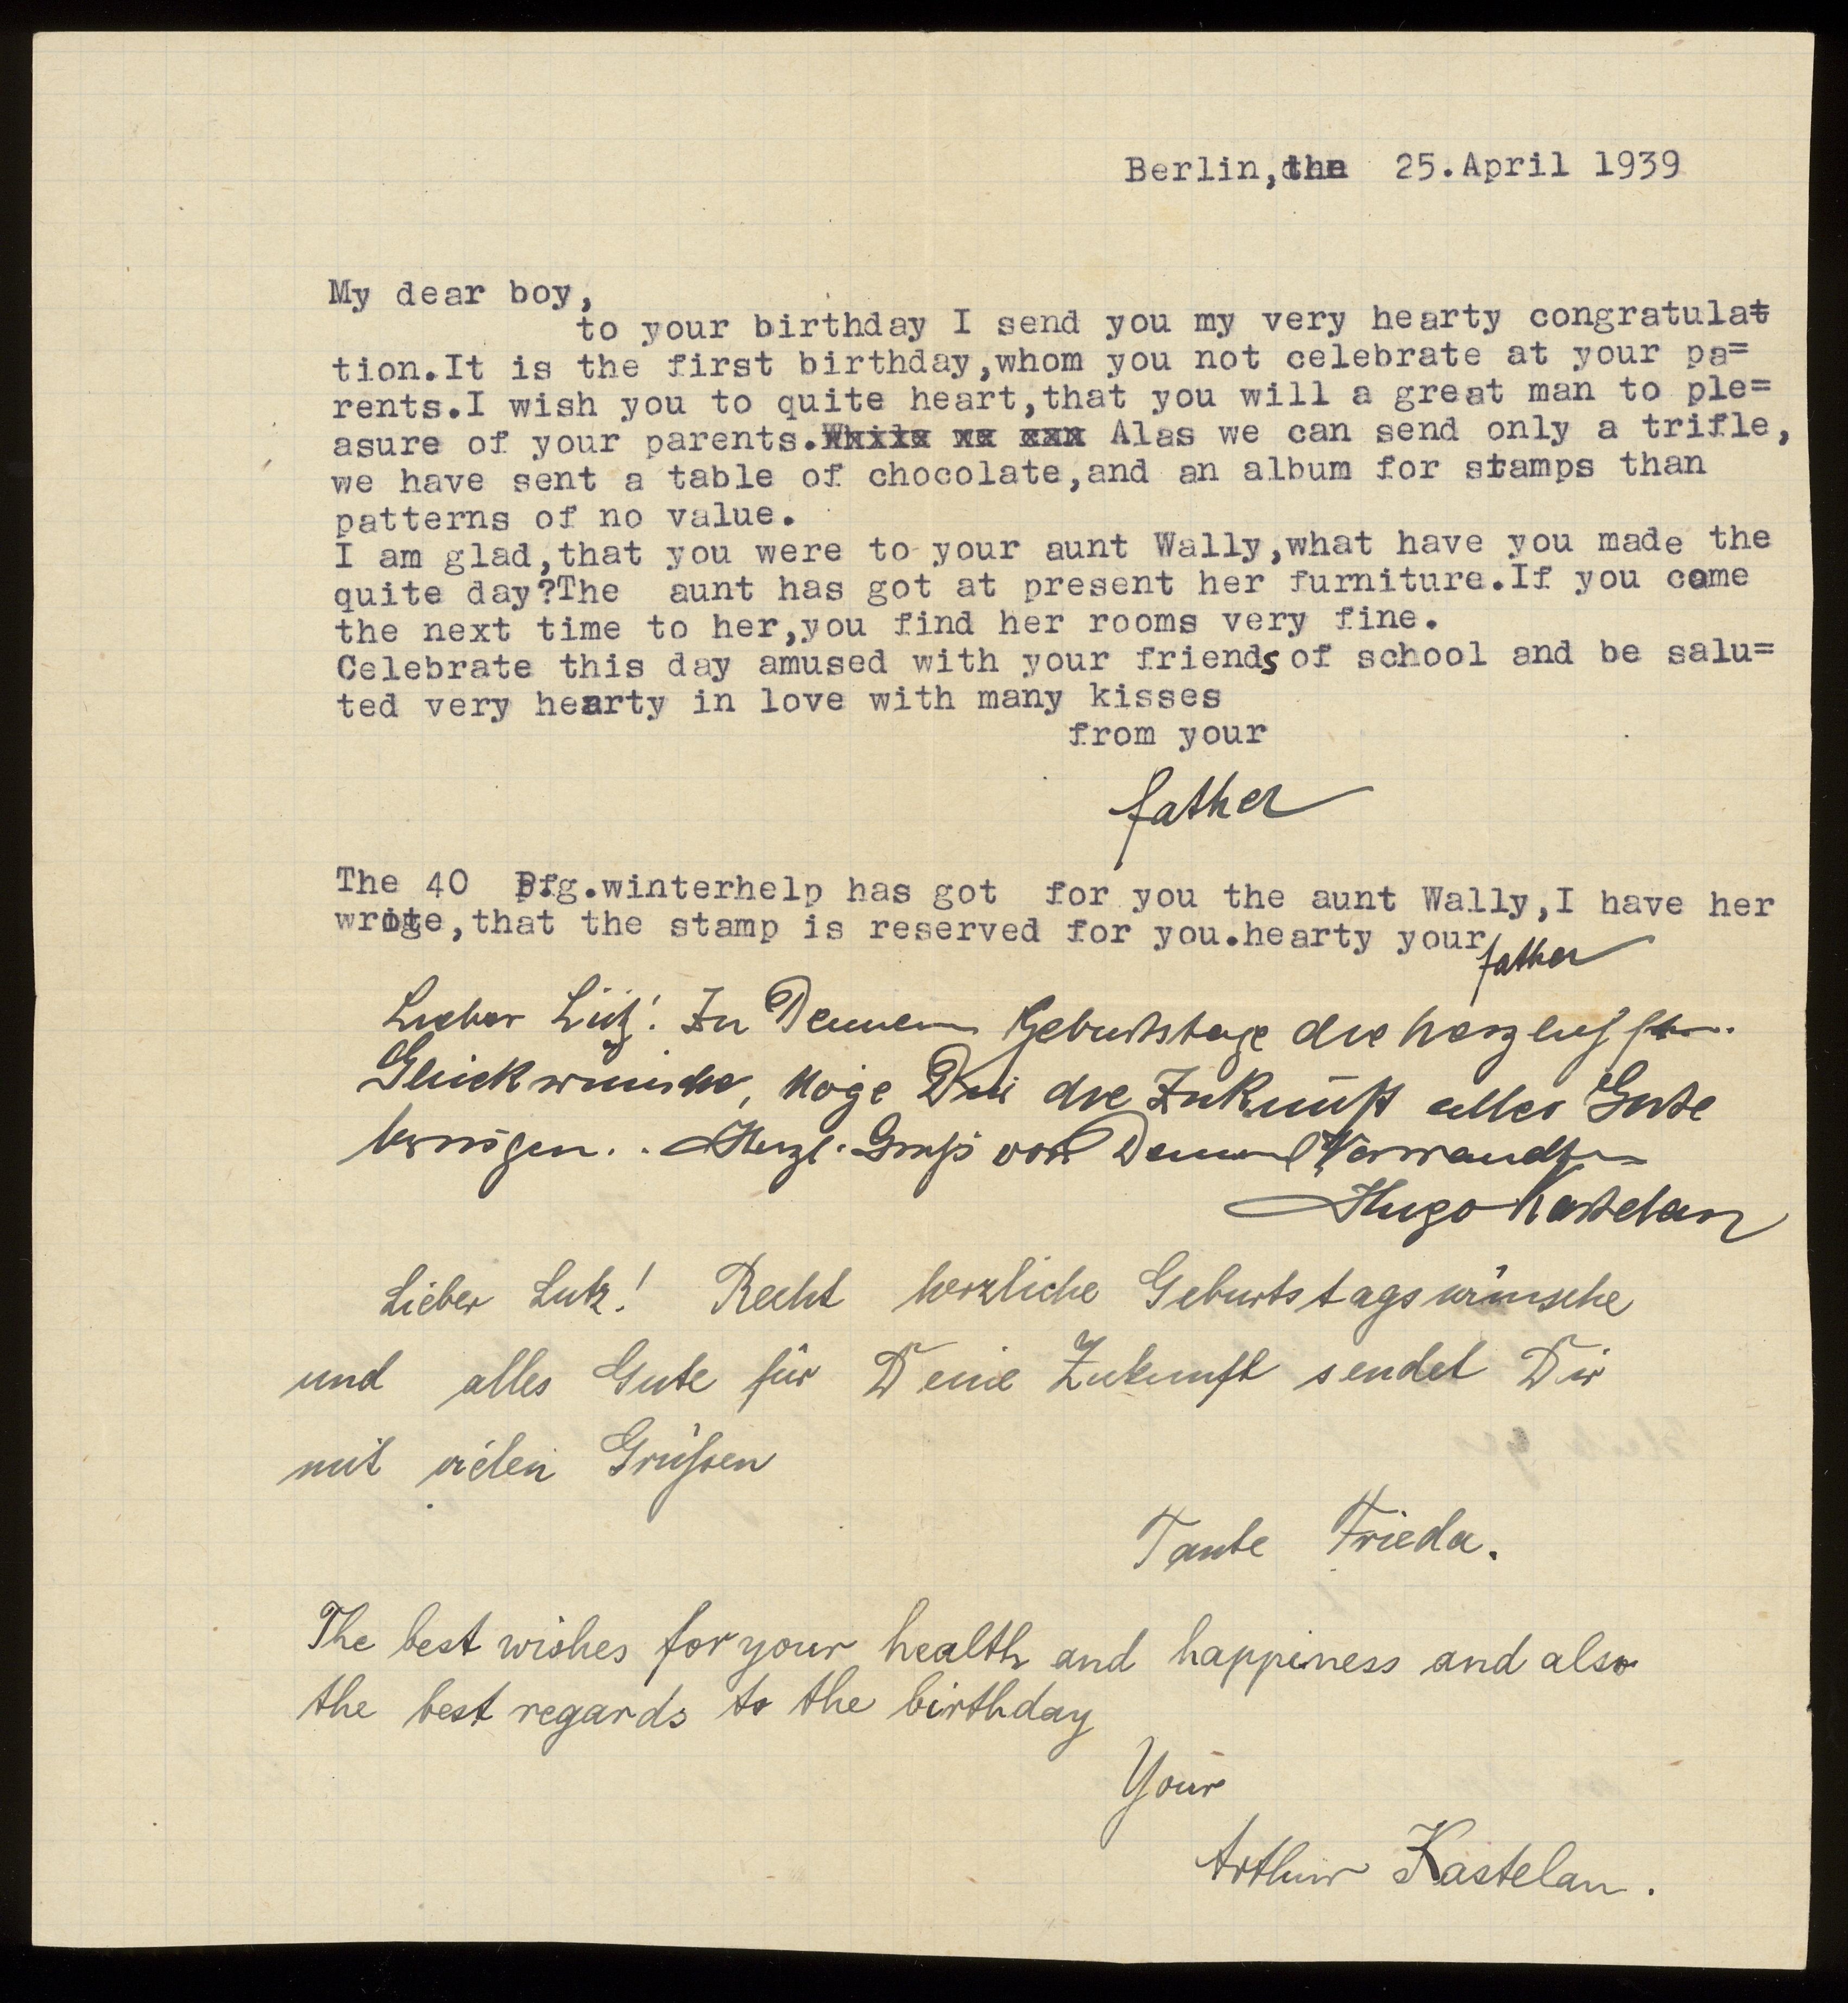 Berlin, the 25.April 1939
My dear boy,
to your birthday I send you my very hearty congratulat
tion.It is the first birthday,whom you not celebrate at your pa=
rents.I wish you to quite heart,that you will a great man to ple=
asure of your parents. Alas we can send only a trifle,
we have sent a table of chocolate,and an album for stamps than
patterns of no value.
I am glad,that you were to your aunt Wally,what have you made the
quite day?The aunt has got at present her furniture.If you come
the next time to her,you find her rooms very fine.
Celebrate this day amused with your friends of school and be salu=
ted very hearty in love with many kisses
from your
father
The 40 Pfg.winterhelp has got for you the aunt Wally,I have her
wrote,that the stamp is reserved for you.hearty your
father
Lieber Lutz! Zu Deinem Geburtstage die herzlichsten
Glückwünsche, möge Dir die Zukunft alles Gute
bringen.. Herzl. Gruß von Deinem Verwandten
Hugo Kastelan
Lieber Lutz! Recht herzliche Geburtstagswünsche
und alles Gute für Deine Zukunft sendet Dir
mit vielen Grüßen
Tante Frieda.
The best wishes for your health and happiness and also
the best regards to the birthday
Your
Arthur Kastelan.